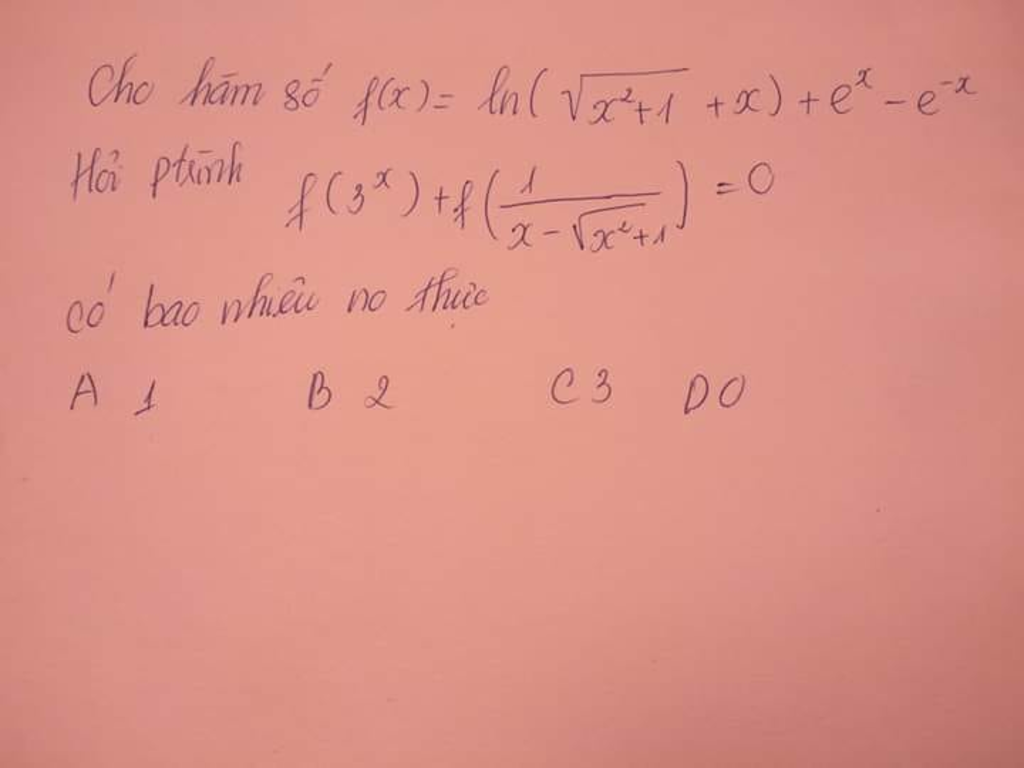 Cho hàm số f(x) = ln(√(x²+1) + x) + eˣ - e⁻ˣ
Hỏi ptrình f(3ˣ) + f(1/(x - √(x²+1))) = 0
có bao nhiêu no thực
A 1 B 2 C 3 D 0